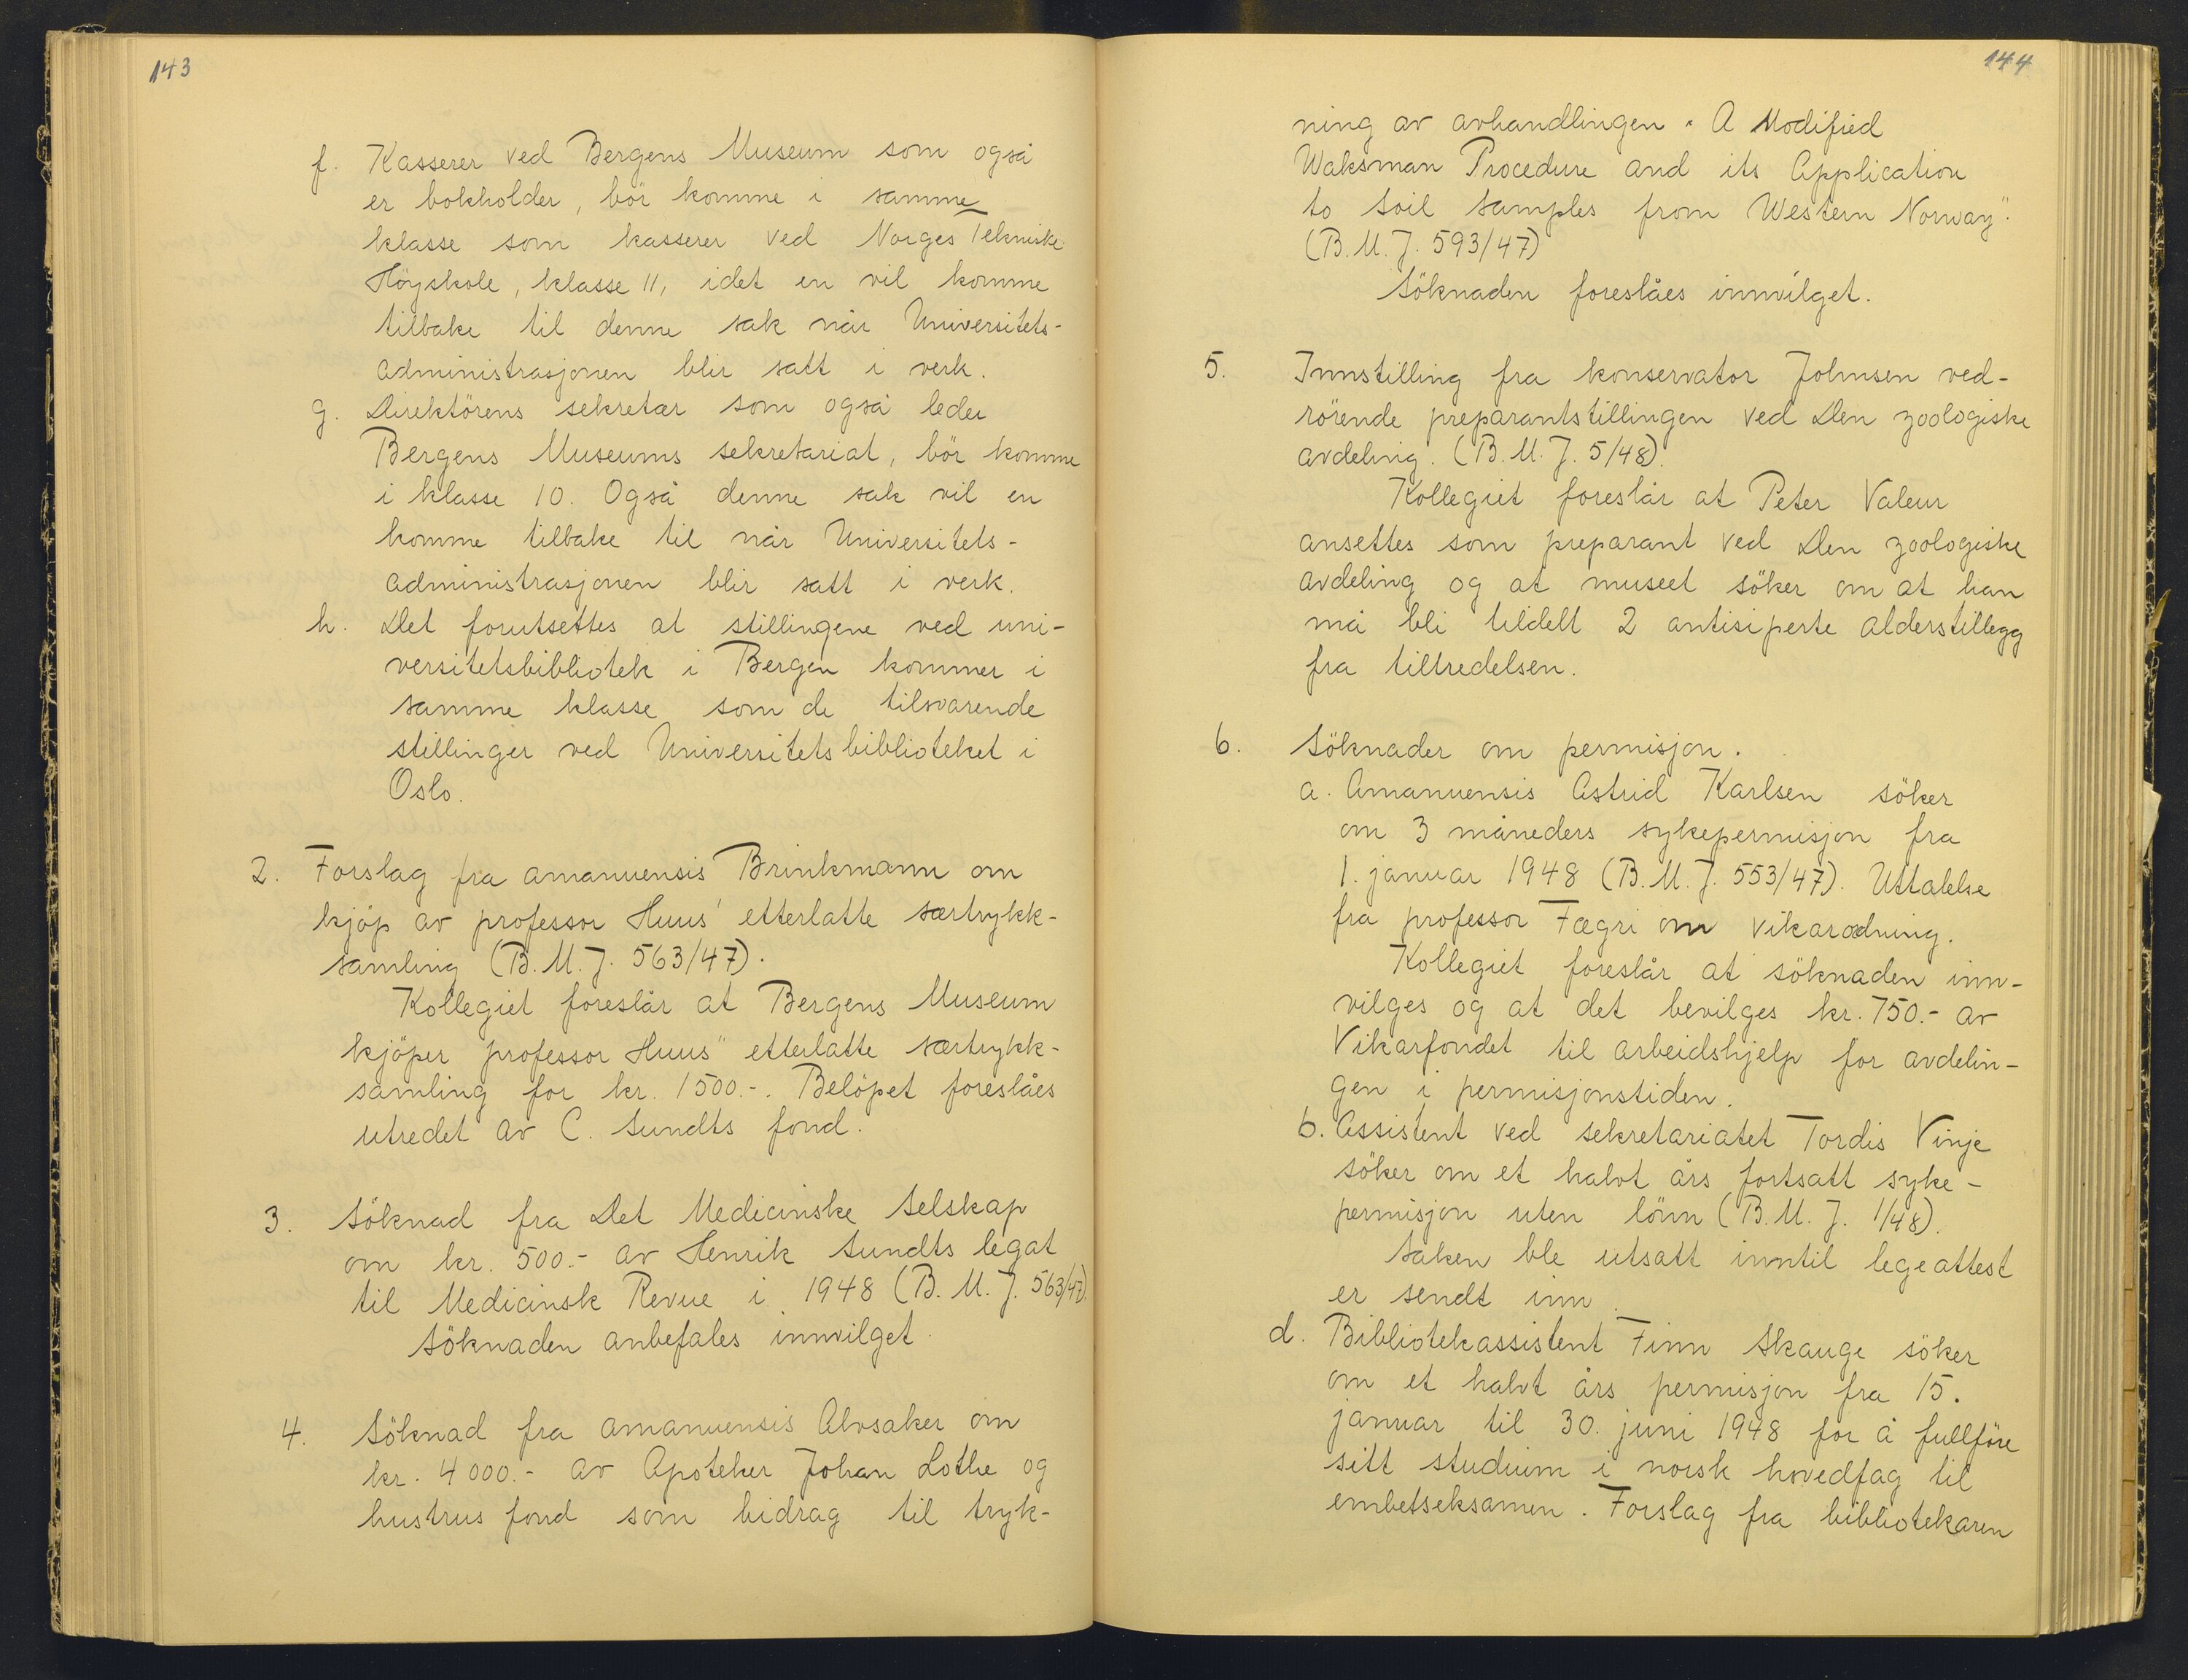 143
f. Kasserer ved Bergens Museum som også
er bokholder, bör komme i samme
klasse som kasserer ved Norges Tekniske
Höyskole, klasse 11, idet en vil komme
tilbake til denne sak når Universitets-
administrasjonen blir satt i verk.
g. Direktörens sekretær som også leder
Bergens Museums sekretariat, bör komme
i klasse 10. Også denne sak vil en
komme tilbake til når Universitets-
administrasjonen blir satt i verk.
h. Det forutsettes at stillingene ved uni-
versitetsbibliotek i Bergen kommer i
samme klasse som de tilsvarende
stillinger ved Universitetsbiblioteket i
Oslo.
2. Forslag fra amanuensis Brinkmann om
kjöp av professor Huus' etterlatte særtrykk-
samling (B.M.J. 563/47).
Kollegiet foreslår at Bergens Museum
kjöper professor Huus" etterlatte særtrykk-
samling for kr. 1500.-. Belöpet foreslåes
utredet av C. Sundts fond.
3. Söknad fra Det Medicinske Selskap
om kr. 500.- av Henrik Sundts legat
til Medicinsk Revue i 1948 (B.M.J. 563/47)
Söknaden anbefales innvilget.
4. Söknad fra amanuensis Alvsaker om
kr. 4000.- av Apoteker Johan Lothe og
hustrus fond som bidrag til tryk-
144
ning av avhandlingen "A Modified
Waksman Procedure and its Application
to Soil Samples from Western Norway".
(B.M.J. 593/47)
Söknaden foreslåes innvilget.
5. Innstilling fra konservator Johnsen ved-
rörende preparantstillingen ved Den zoologiske
avdeling. (B.M.J. 5/48).
Kollegiet foreslår at Peter Valeur
ansettes som preparant ved Den zoologiske
avdeling og at museet söker om at han
må bli tildelt 2 antisiperte alderstillegg
fra tiltredelsen.
6. Söknader om permisjon.
a. Amanuensis Astrid Karlsen söker
om 3 måneders sykepermisjon fra
1. januar 1948 (B.M.J. 553/47). Uttalelse
fra professor Fægri om vikarordning.
Kollegiet foreslår at söknaden inn-
vilges og at det bevilges kr. 750.- av
Vikarfondet til arbeidshjelp for avdelin-
gen i permisjonstiden.
b. Assistent ved sekretariatet Tordis Vinje
söker om et halvt års fortsatt syke-
permisjon uten lönn (B.M.J. 1/48).
Saken ble utsatt inntil legeattest
er sendt inn.
d. Bibliotekassistent Finn Skauge söker
om et halvt års permisjon fra 15.
januar til 30. juni 1948 for å fullföre
sitt studium i norsk hovedfag til
embetseksamen. Forslag fra bibliotekaren